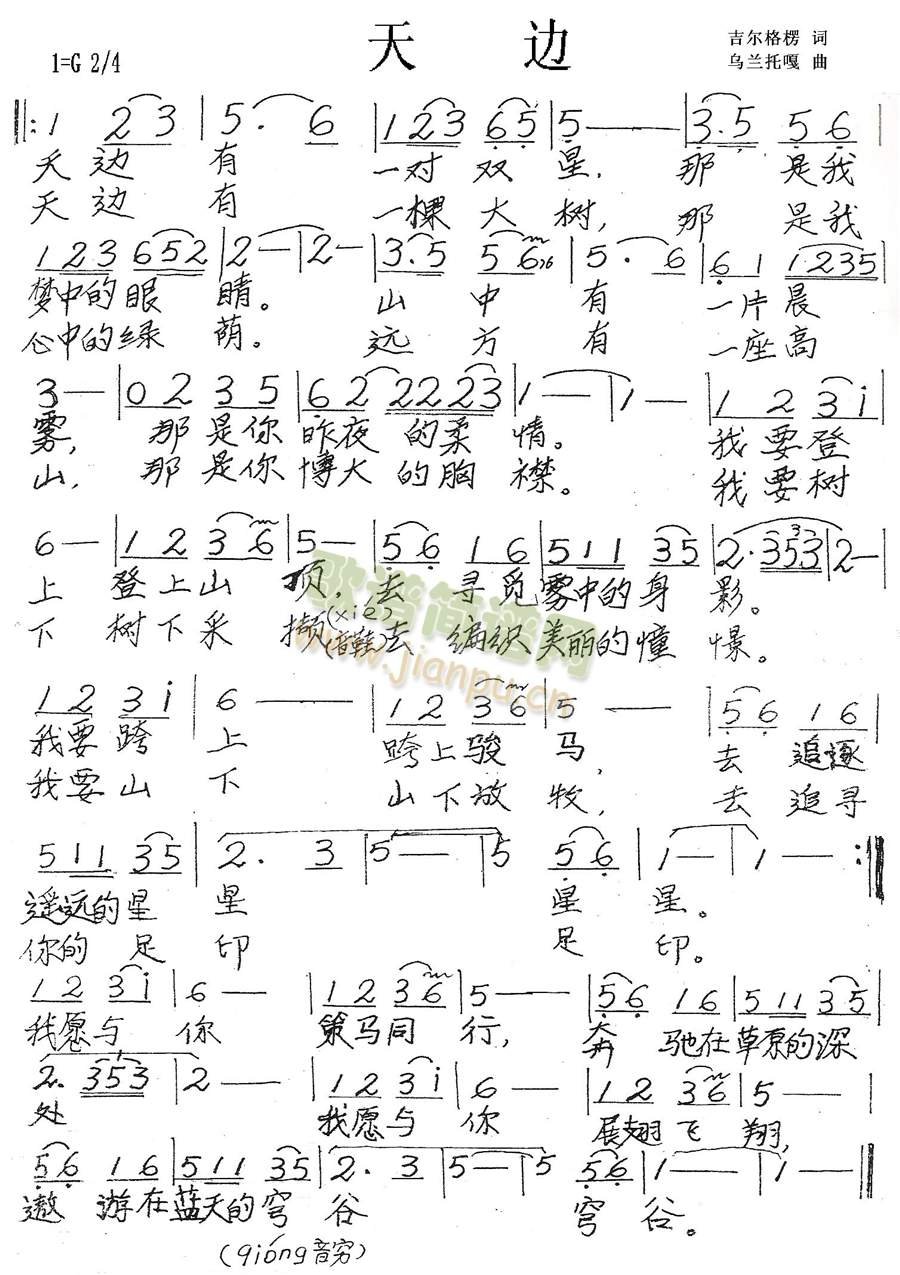 天边
吉尔格楞 词
1=G 2/4
乌兰托嘎 曲
1 2 3 | 5. 6 | 1 2 3 6 5 | 5 — — | 3. 5 5 6
天边 有 一对 双 星, 那 是我
天边 有 一棵 大 树, 那 是我
1 2 3 6 5 2 | 2 — | 2 — | 3. 5 5 6 | 5. 6 | 6 1 1 2 3 5
梦中的眼 睛。 山 中 有 一片晨
心中的绿 荫。 远 方 有 一座高
3 — | 0 2 3 5 | 6 2 2 2 2 3 | 1 — | 1 — | 1 2 3 i
雾, 那 是你 昨夜 的柔 情。 我要登
山, 那 是你 博大 的胸 襟。 我要树
6 — | 1 2 3 6 | 5 — | 5 6 1 6 | 5 1 1 3 5 | 2. 3 5 3 | 2 —
上 登上山 顶, 去 寻觅雾中的身 影。
下 树下采 撷(xié音鞋)去 编织美丽的憧 憬。
歌谱简谱网
www.jianpu.cn
1 2 3 i | 6 — — | 1 2 3 6 | 5 — — | 5 6 1 6
我要跨 上 跨上骏 马, 去 追逐
我要山 下 山下放 牧, 去 追寻
5 1 1 3 5 | 2. 3 | 5 — | 5 5 6 | 1 — | 1 — :||
遥远的星 星 星 星。
你的 足 印 足 印。
1 2 3 i | 6 — | 1 2 3 6 | 5 — — | 5 6 1 6 | 5 1 1 3 5
我愿与 你 策马同 行, 奔 驰在草原的深
2. 3 5 3 | 2 — — | 1 2 3 i | 6 — — | 1 2 3 6 | 5 — |
处 我愿与 你 展翅飞 翔,
5 6 1 6 | 5 1 1 3 5 | 2. 3 | 5 — | 5 5 6 | 1 — — | 1 — ||
遨 游在蓝天的穹 谷 穹 谷。
(qióng音穷)